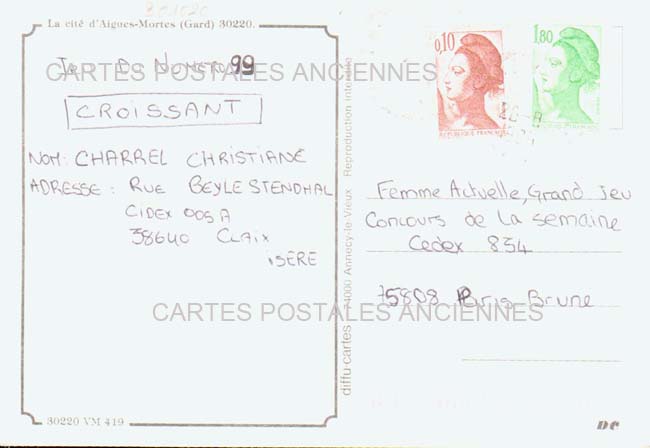 La cité d'Aigues-Mortes (Gard) 30220.
Jeu Du Numero 99
CARTES POSTALES ANCIENNES
CROISSANT
NOM: CHARREL CHRISTIANE
ADRESSE: RUE BEYLE STENDHAL
CIDEX 005A
38640 CLAIX
ISÈRE
CARTES POSTALES ANCIENNES
30220 VM 419
diffu-cartes 74000 Annecy-le-Vieux Reproduction interdite
0,10
RÉPUBLIQUE FRANÇAISE
1,80
Femme Actuelle, Grand Jeu
Concours de la semaine
Cedex 834
75808 Paris Brune
DC